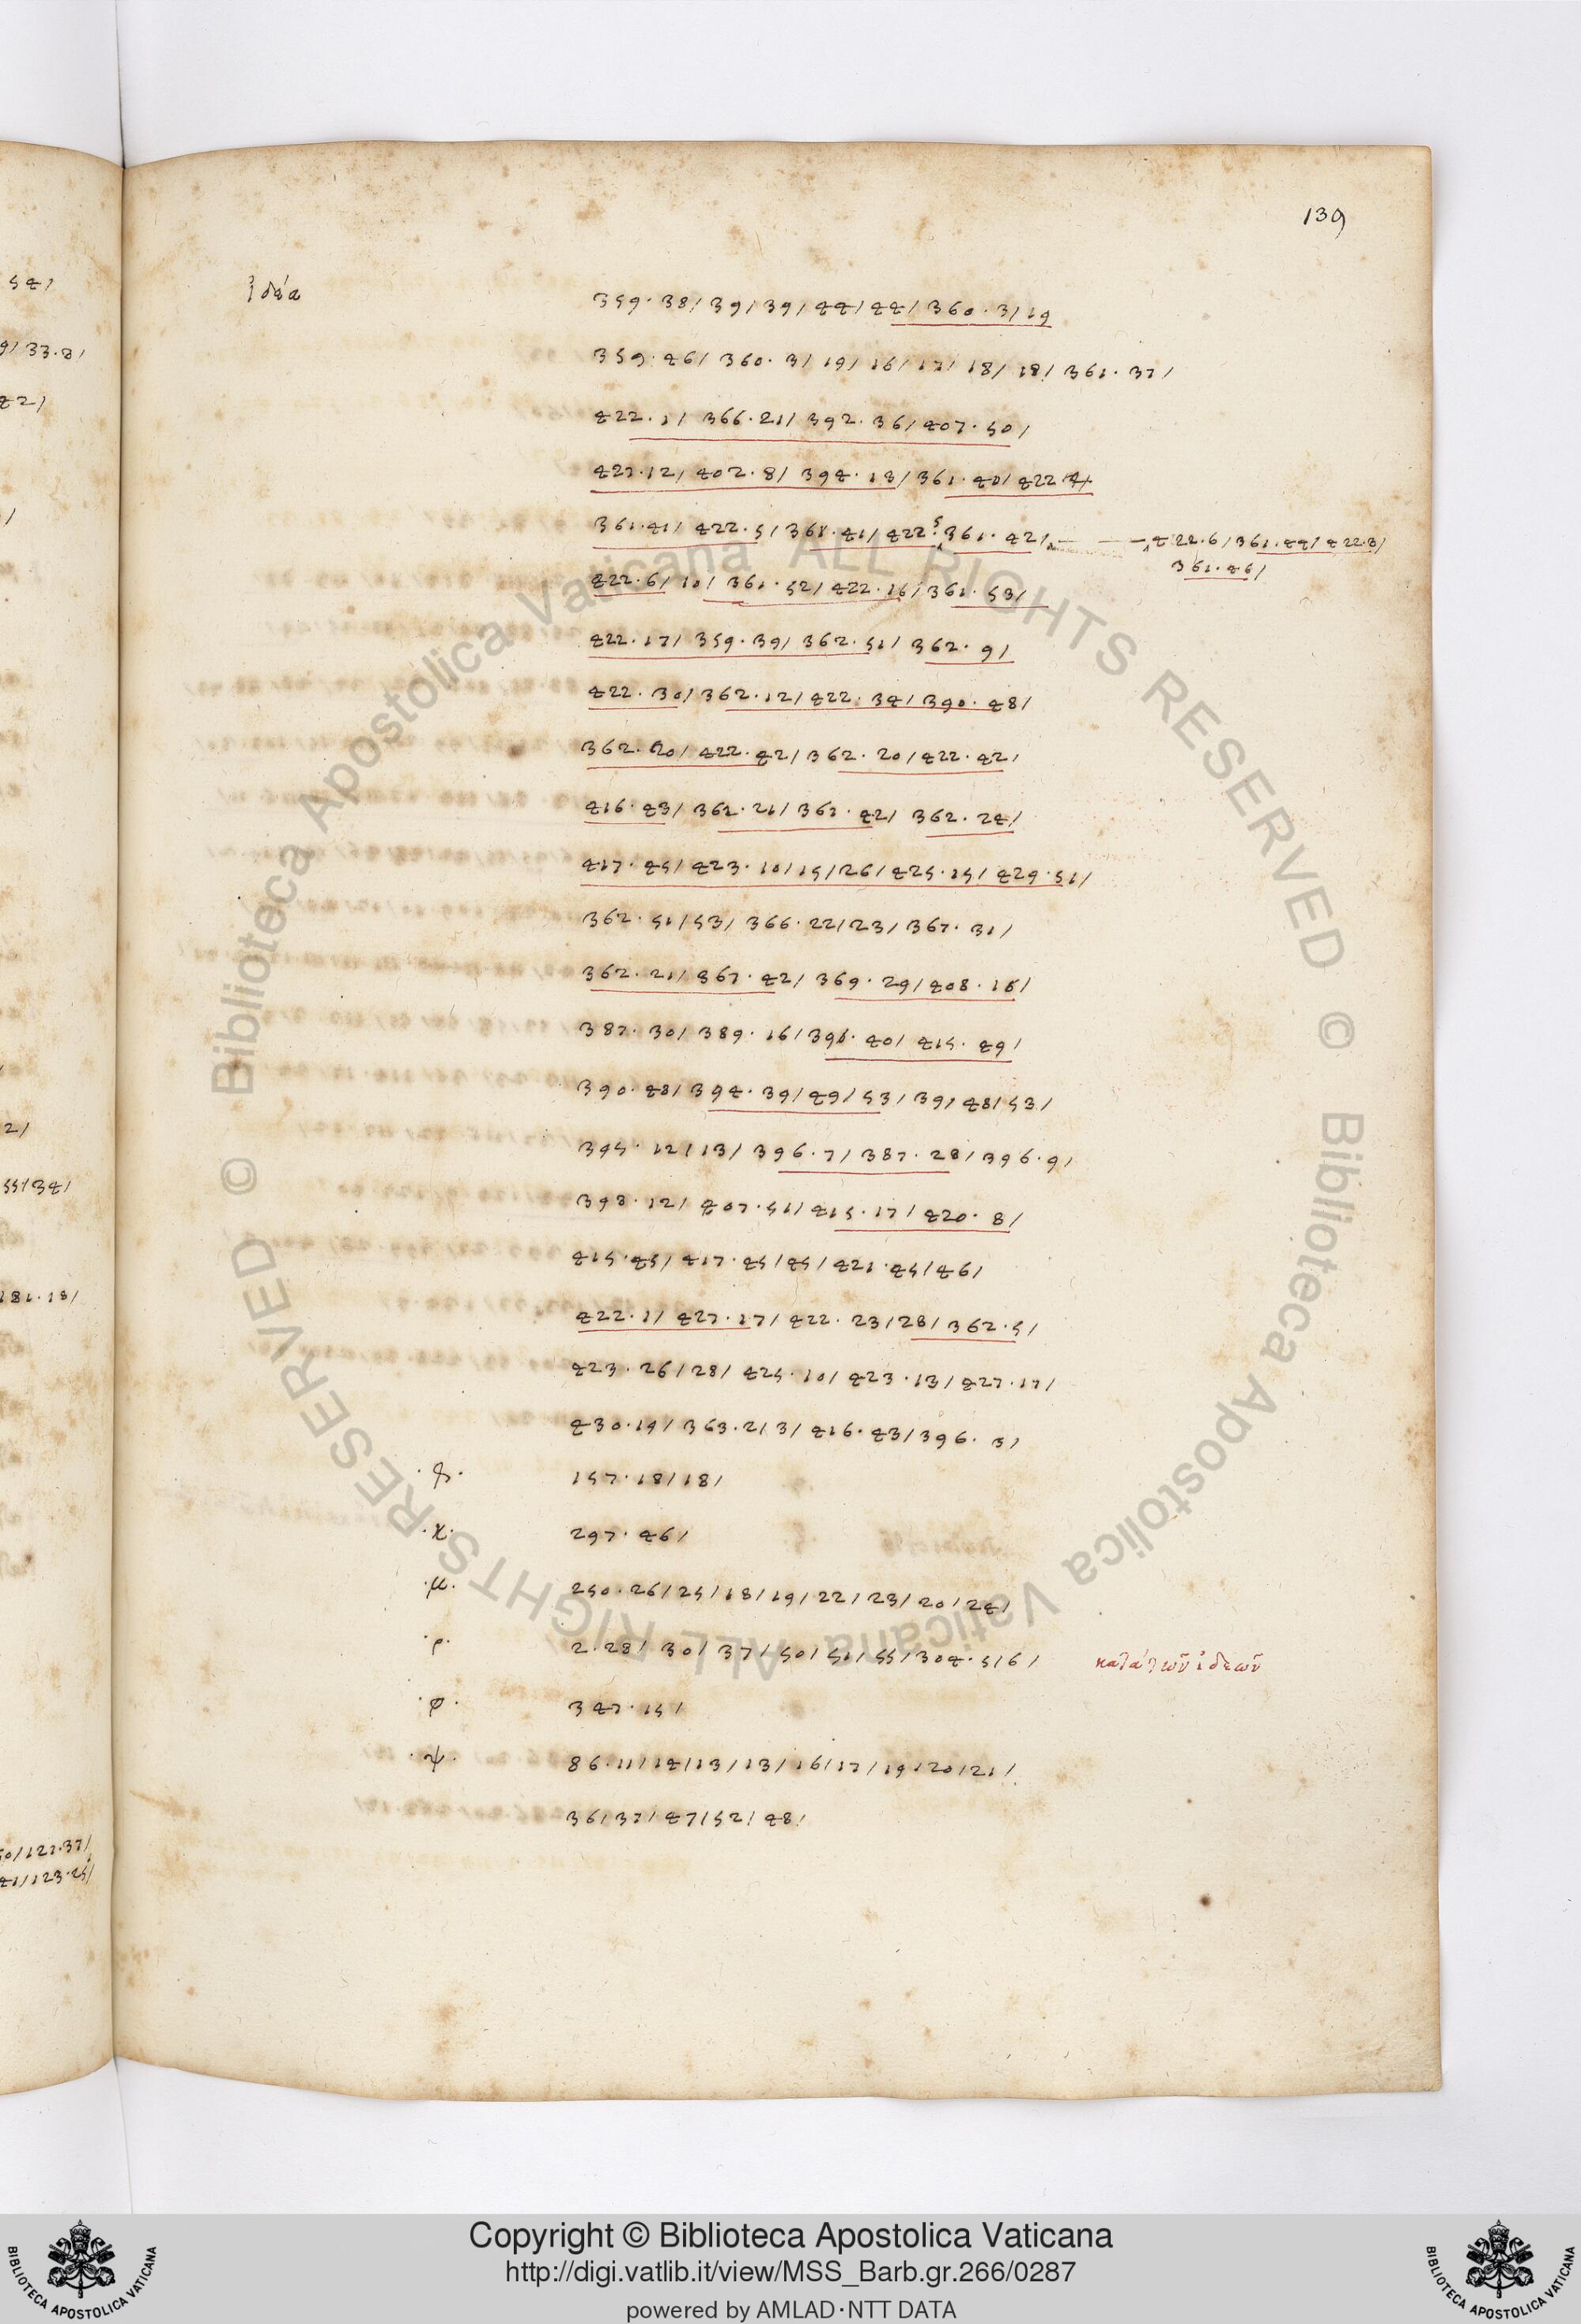 139
ἰδέα
359·38/39/39/44/44/360·3/19
359·46/360·3/19/16/17/18/18/361·37/
422·1/366·21/392·36/407·50/
427·12/402·8/394·18/361·40/422·4/
361·41/422·5/361·41/422·5/361·42/ 422·6/361·44/422·8/
361·46/
422·6/10/361·52/422·16/361·53/
422·17/359·39/362·51/362·9/
422·30/362·12/422·34/390·48/
362·20/422·42/362·20/422·42/
416·43/362·21/362·42/362·24/
417·45/423·10/15/26/425·15/429·51/
362·51/53/366·22/23/367·31/
362·21/367·42/369·29/408·16/
387·30/389·16/391·40/415·49/
390·48/394·39/49/53/39/48/53/
395·12/13/396·7/387·28/396·9/
398·12/407·51/415·17/420·8/
415·45/417·45/45/421·45/46/
422·1/427·17/422·23/28/362·5/
423·26/28/425·10/423·13/427·17/
430·19/363·2/3/416·43/396·3/
157·18/18/
·χ· 297·46/
·μ· 250·26/25/18/19/22/23/20/24/
·ρ· 2·28/30/37/50/51/55/304·5/6/ κατὰ τῶν ἰδεῶν
·φ· 347·15/
·ψ· 86·11/14/13/13/16/17/19/20/21/
36/37/47/52/48/
54/
9/33·8/
42/
/
2/
55/34/
181·18/
50/121·37/
41/123·25/
© Biblioteca Apostolica Vaticana ALL RIGHTS RESERVED
© Biblioteca Apostolica Vaticana ALL RIGHTS RESERVED
BIBLIOTECA APOSTOLICA VATICANA
Copyright © Biblioteca Apostolica Vaticana
http://digi.vatlib.it/view/MSS_Barb.gr.266/0287
powered by AMLAD·NTT DATA
BIBLIOTECA APOSTOLICA VATICANA